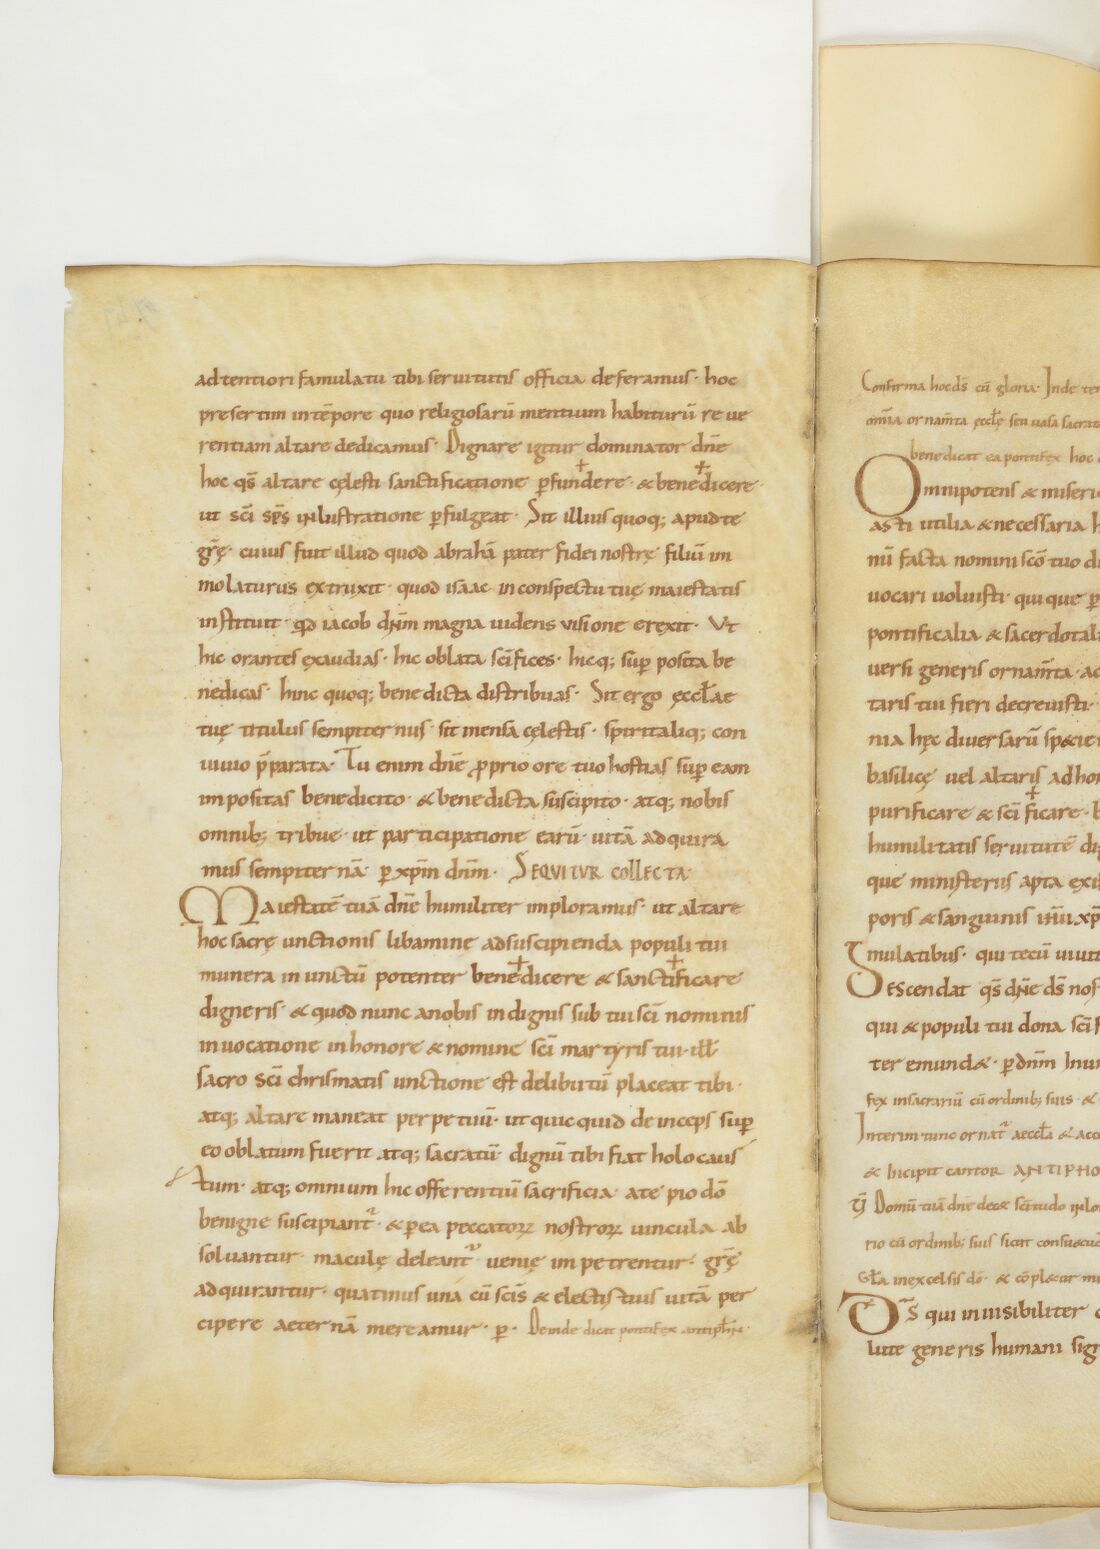 adtentiori famulatu tibi seruitutis officia deferamus· hoc
presertim intēpore quo religiosarū mentium habiturū reue
rentiam altare dedicamus· Dignare igitur dominator dn̄e
hoc qs̄ altare cęlesti sanctificatione ꝑfun+dere· &bene+dicere·
ut sc̄i sps̄ inlustratione ꝑfulgeat· Sit illius quoq; apud te
gr̄ę· cuius fuit illud quod abrahā pater fidei nostrę filiū im
molaturus extruxit· quod isaac in conspectu tuę maiestatis
instituit· qd̄ iacob dn̄m magna uidens visione erexit· Ut
hic orantes exaudias· hic oblata sc̄ifices· hicq; suꝑposita be
nedicas· hinc quoq; benedicta distribuas· Sit ergo ęccl̄ae
tuę titulus sempiternus· sit mensa cęlestis· spiritaliq; con
uiuio p̄parata· Tu enim dn̄e ꝓprio ore tuo hostias suꝑ eam
impositas benedicito· &benedicta suscipito· atq; nobis
omnib; tribue· ut participatione earū· uitā adquira
mus sempiternā· ꝑ xp̄m dn̄m· SEQUITUR COLLECTA·
Maiestatē tuā dn̄e humiliter imploramus· ut altare
hoc sacrę unctionis libamine adsuscipienda populi tui
munera inunctū potenter bene+dicere & sancti+ficare
digneris· & quod nunc anobis indignis sub tui sc̄i nominis
inuocatione inhonore &nomine sc̄i martyris tui· ill̄
sacro sc̄i chrismatis unctione est delibutū placeat tibi·
atq; altare maneat perpetuū· ut quicquid deinceps suꝑ
eo oblatum fuerit atq; sacratū· dignū tibi fiat holocaus
tum· atq; omnium hic offerentiū sacrificia ate pio dn̄o
benigne suscipiant᷑· &ꝑea peccatoꝝ nostroꝝ uincula ab
soluantur· maculę deleant᷑ uenię impetrentur· gr̄ę
adquirantur· quatinus unā cū sc̄is & electis tuis uitā per
cipere aeternā mereamur· ꝑ· Deinde dicat pontifex
Confirma hoc ds̄ cū gloria· Inde
omīa ornam̄ta ęccl̄ę seu uasa
benedicat ea pontifex hoc
Omnipotens & miseri
utilia &necessaria
nū facta nomini sc̄o tuo
uocari uoluisti· quique
pontificalia & sacerdotal
uersi generis ornam̄ta·
taris tui fieri decreuisti·
nia hęc diuersarū
basilicę uel altaris ad
purificare & sc̄i+ficare·
humilitatis seruitutē
que ministeriis apta
poris &sanguinis
mulatibus· qui tecū
Descendat qs̄ dn̄e ds̄
qui &populi tui dona
ter emund&· ꝑ dn̄m
fex insacrariū cū ordinib; suis·
Interim tunc ornat᷑ aeccl̄a
& Incipit cantor
Domū tuā dn̄e dec&
rio cū ordinib; suis sicut
Gl̄a inexcelsis dō· &
Ds̄ qui inuisibiliter
lute generis humani